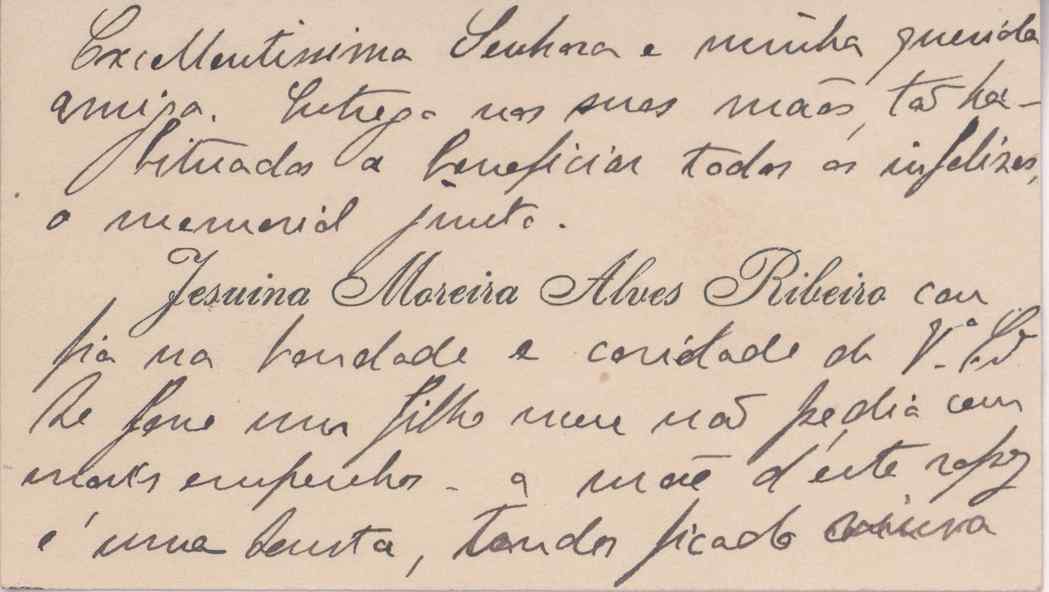 Excellentissima Senhora e minha querida
amiga. Entrego nas suas mãos, tão ha-
bituados a beneficiar todos os infelizes,
o memorial junto.
Jesuina Moreira Alves Ribeiro con
fia na bondade e caridade de V.ª Ex
Se fosse um filho meu não pedia com
mais empenho - a mãe d'este rapaz
é uma santa, tendo ficado viuva